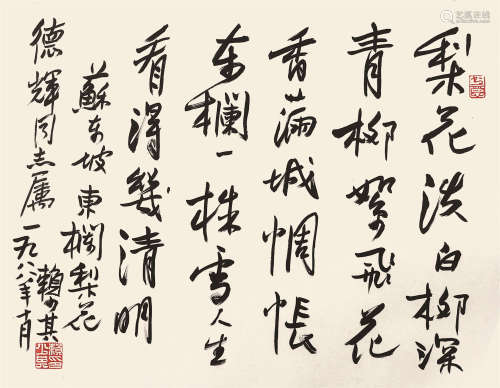 梨花淡白柳深
青柳絮飛花
香滿城惆悵
东欄一株雪人生
看得幾清明
蘇东坡東欄梨花
德輝同志属
一九八八年十月
賴少其